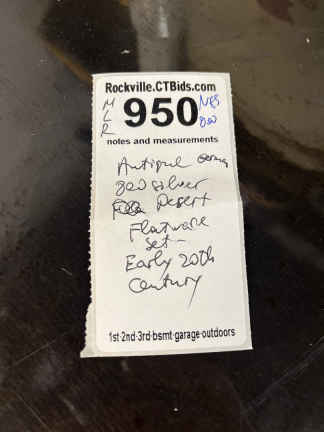 Rockville.CTBids.com
MLR 950
notes and measurements
Antique
800 silver
Desert
Flatware
Set -
Early 20th
Century
1st-2nd-3rd-bsmt-garage-outdoors